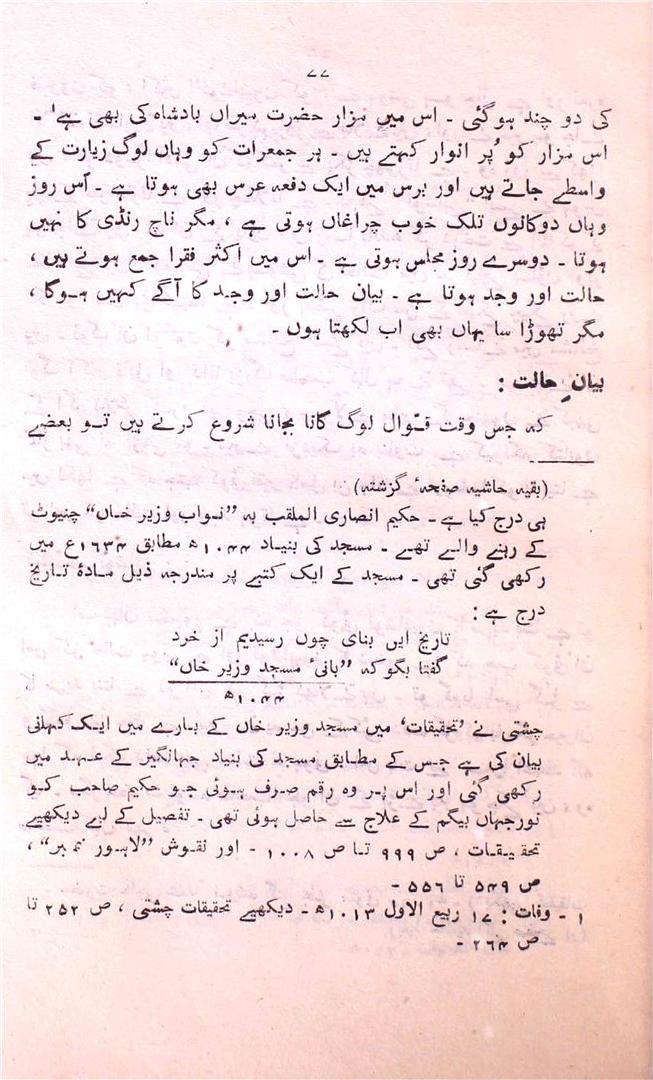 ۷۷
کی دو چند ہوگئی ۔ اس میں مزار حضرت میراں بادشاہ کی بھی ہے۱ ۔
اس مزار کو پُر انوار کہتے ہیں ۔ ہر جمعرات کو وہاں لوگ زیارت کے
واسطے جاتے ہیں اور برس میں ایک دفعہ عرس بھی ہوتا ہے ۔ اُس روز
وہاں دوکانوں تلک خوب چراغاں ہوتی ہے ، مگر ناچ رنڈی کا نہیں
ہوتا ۔ دوسرے روز مجلس ہوتی ہے ۔ اس میں اکثر فقرا جمع ہوتے ہیں ،
حالت اور وجد ہوتا ہے ۔ بیان حالت اور وجد کا آگے کہیں ہوگا ،
مگر تھوڑا سا یہاں بھی اب لکھتا ہوں ۔
بیانِ حالت :
کہ جس وقت قوّال لوگ گانا بجانا شروع کرتے ہیں تو بعضے
(بقیہ حاشیہ صفحہٴ گزشتہ)
ہی درج کیا ہے ۔ حکیم انصاری الملقب بہ ”نواب وزیر خاں“ چنیوٹ
کے رہنے والے تھے ۔ مسجد کی بنیاد ۱۰۴۴ھ مطابق ۱۶۳۴ع میں
رکھی گئی تھی ۔ مسجد کے ایک کتبے پر مندرجہ ذیل مادۂ تاریخ
درج ہے :
تاریخ ایں بنای چوں رسیدیم از خرد
گفتا بگو کہ ”بانیٴ مسجد وزیر خاں“
۱۰۴۴ھ
چشتی نے ’تحقیقات‘ میں مسجد وزیر خاں کے بارے میں ایک کہانی
بیان کی ہے جس کے مطابق مسجد کی بنیاد جہانگیر کے عہد میں
رکھی گئی اور اس پر وہ رقم صرف ہوئی جو حکیم صاحب کو
نورجہاں بیگم کے علاج سے حاصل ہوئی تھی ۔ تفصیل کے لیے دیکھیے
تحقیقات ، ص ۹۹۹ تا ص ۱۰۰۸ - اور نقوش ”لاہور نمبر“ ،
ص ۵۴۹ تا ۵۵۶ -
۱ - وفات : ۱۷ ربیع الاول ۱۰۱۳ھ ۔ دیکھیے تحقیقات چشتی ، ص ۲۵۲ تا
ص ۲۶۴ -